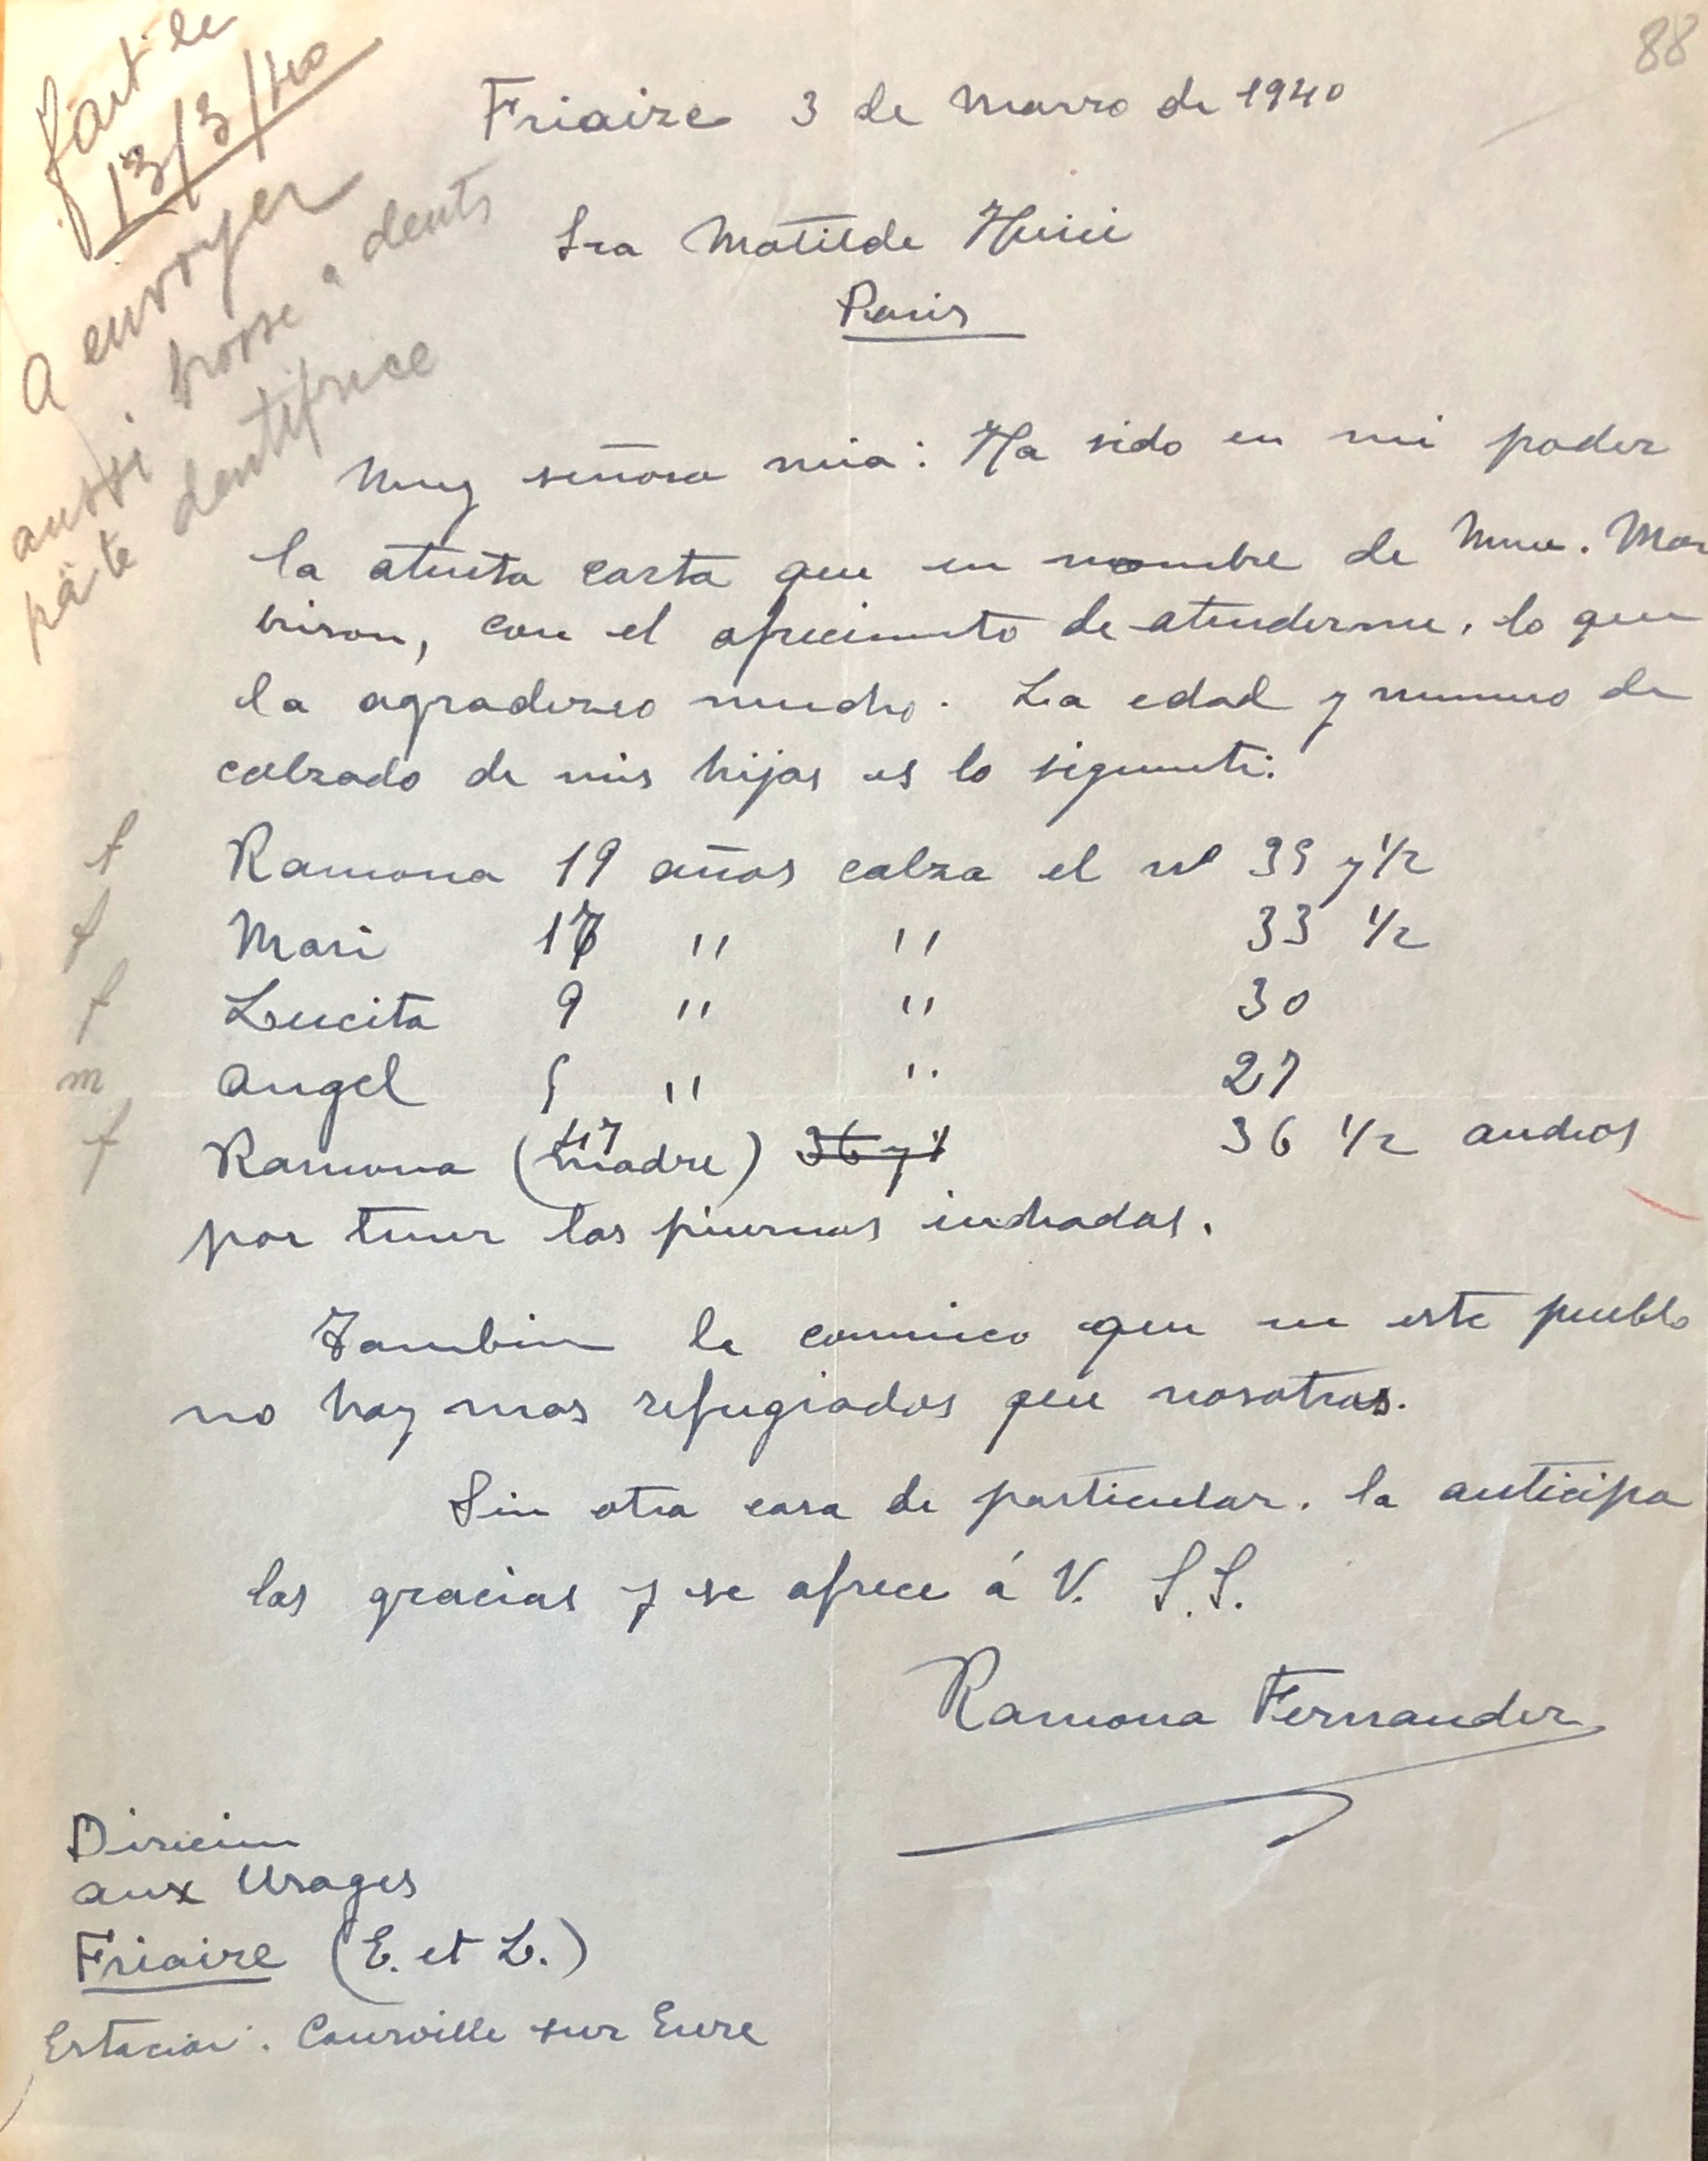 88
fait le
13/3/40
a envoyer
aussi brosse a dents
pâte dentifrice
Friaize 3 de Marzo de 1940
Sra Matilde Huici
Paris
Muy señora mia: Ha sido en mi poder
la atenta carta que en nombre de Mme. Mor
brison, con el ofrecimento de atenderme, lo que
la agradezco mucho. La edad y numero de
calzado de mis hijas es lo siguente:
f Ramona 19 años calza el nº 35 y 1/2
f Mari " " 33 1/2
f Lucita 9 " " 30
m Angel 5 " " 27
f Ramona (madre) 47 36 y 1 36 1/2 anchos
por tener las piernas inchadas.
Tambien le comunico que en este pueblo
no hay mas refugiados que nosotros.
Sin otra cosa de particular, la anticipa
las gracias y se ofrece á V. S.S.
Ramona Fernandez
Direcion
aux Usages
Friaize (E. et L.)
Estacion. Courville sur Eure